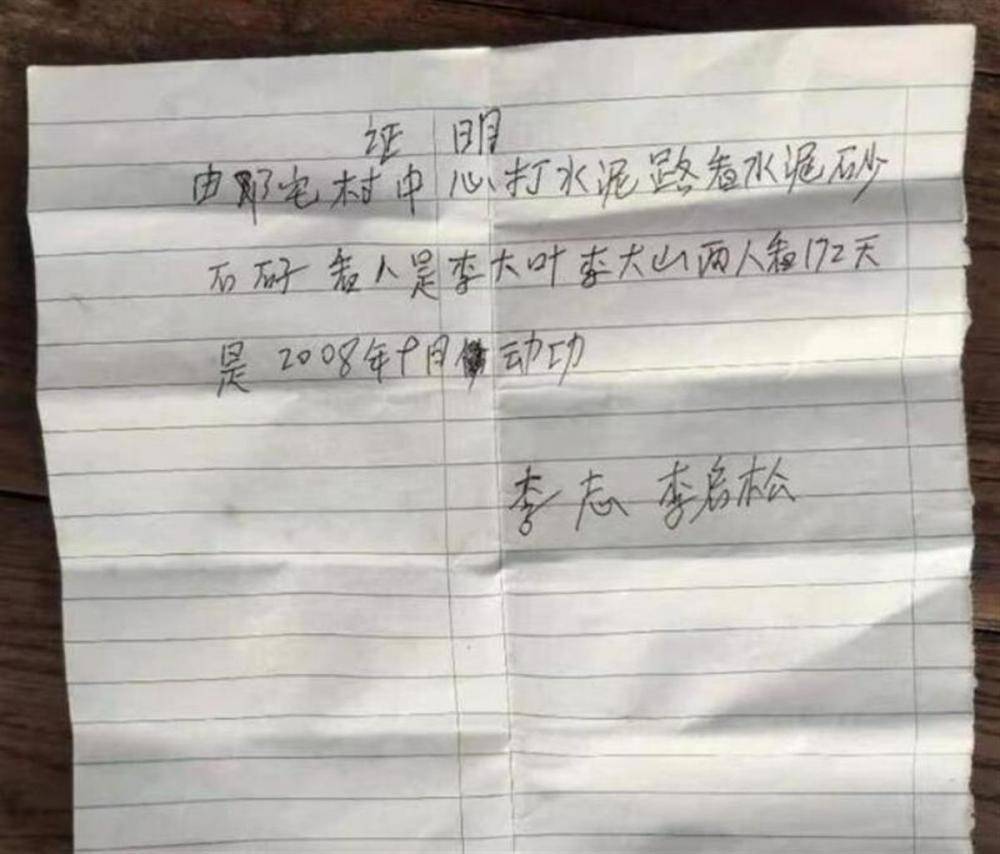 证明
由那宅村中心打水泥路看水泥砂
石砑 看人是李大叶李大山两人看172天
是2008年9月 动功
李志 李启松